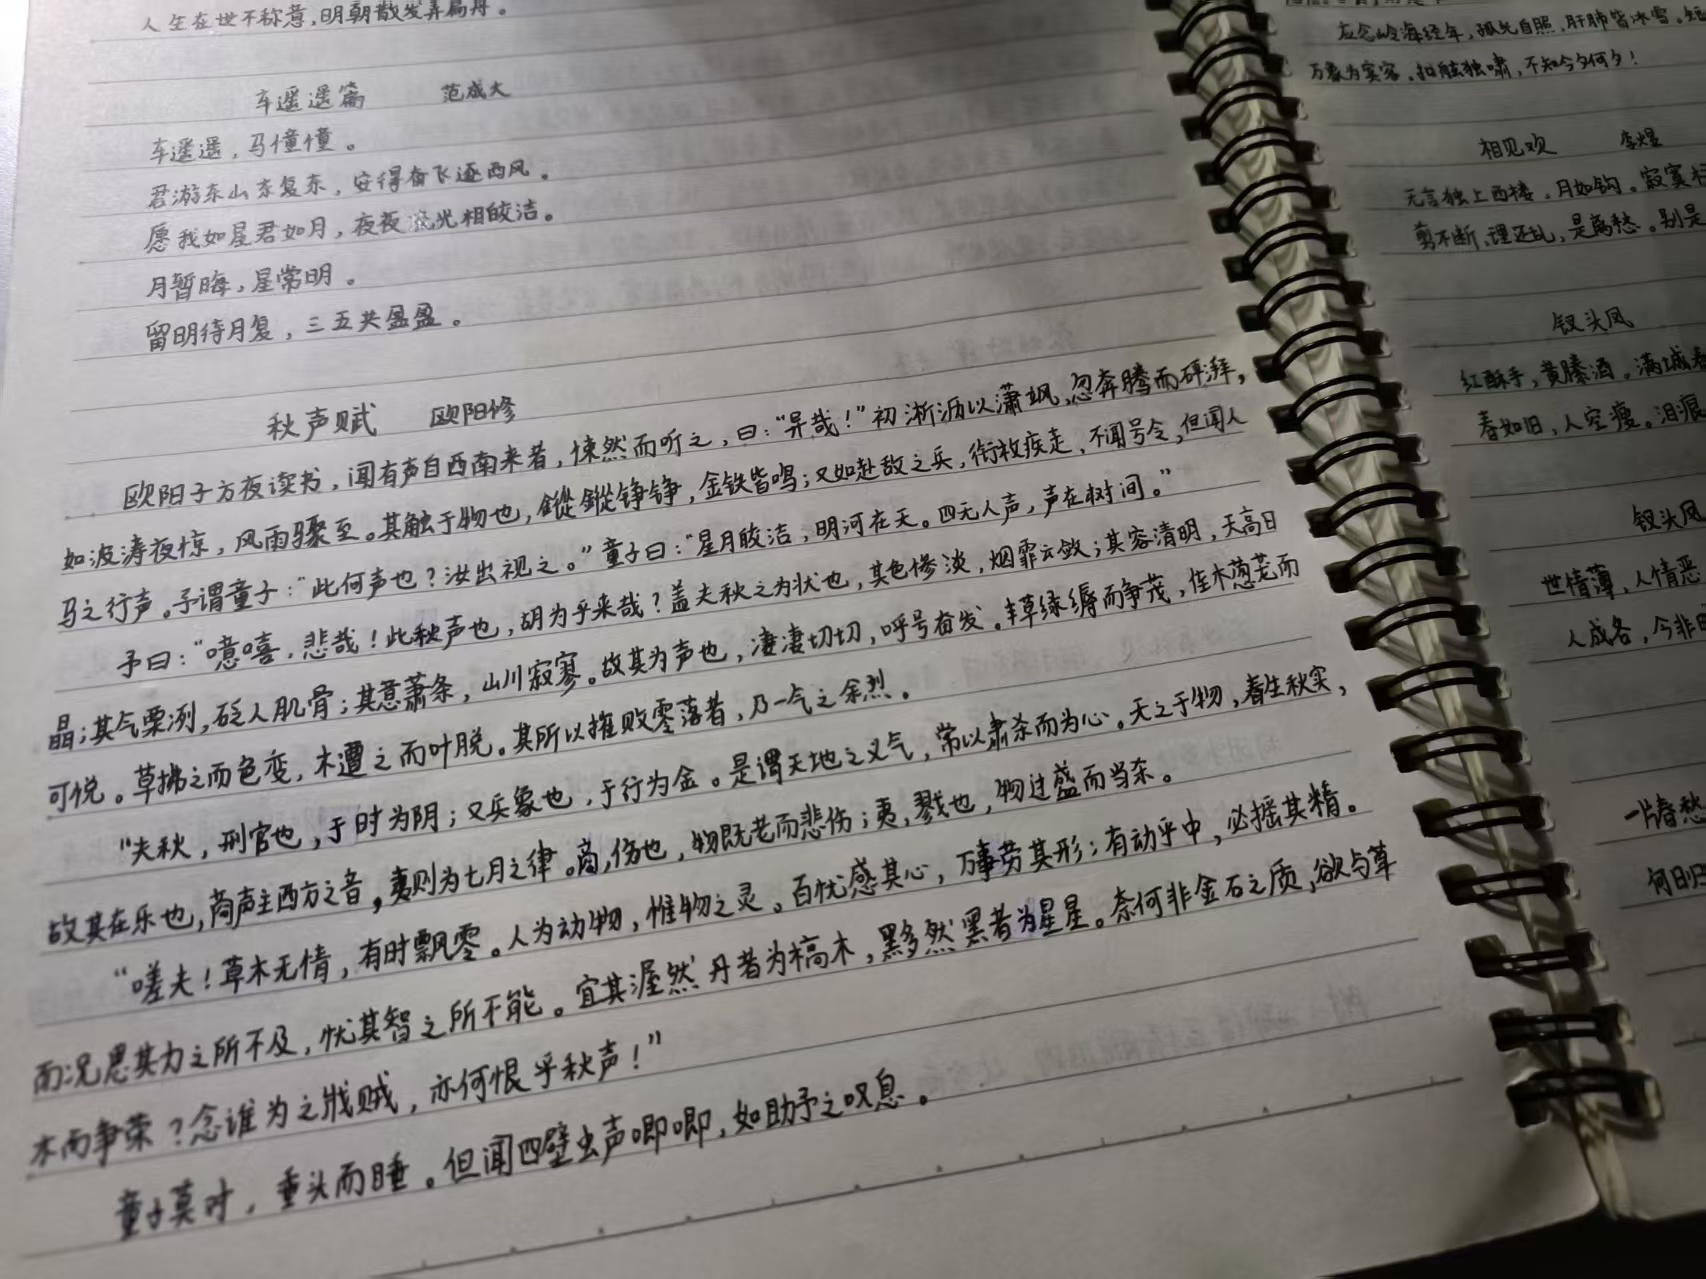 人生在世不称意，明朝散发弄扁舟。
车遥遥篇 范成大
车遥遥，马憧憧。
君游东山东复东，安得奋飞逐西风。
愿我如星君如月，夜夜流光相皎洁。
月暂晦，星常明。
留明待月复，三五共盈盈。
秋声赋 欧阳修
欧阳子方夜读书，闻有声自西南来者，悚然而听之，曰：“异哉！”初淅沥以潇飒，忽奔腾而砰湃，
如波涛夜惊，风雨骤至。其触于物也，鏦鏦铮铮，金铁皆鸣；又如赴敌之兵，衔枚疾走，不闻号令，但闻人
马之行声。予谓童子：“此何声也？汝出视之。”童子曰：“星月皎洁，明河在天。四无人声，声在树间。”
予曰：“噫嘻，悲哉！此秋声也，胡为乎来哉？盖夫秋之为状也，其色惨淡，烟霏云敛；其容清明，天高日
晶；其气栗冽，砭人肌骨；其意萧条，山川寂寥。故其为声也，凄凄切切，呼号奋发。丰草绿缛而争茂，佳木葱茏而
可悦。草拂之而色变，木遭之而叶脱。其所以摧败零落者，乃一气之余烈。
“夫秋，刑官也，于时为阴；又兵象也，于行为金。是谓天地之义气，常以肃杀而为心。天之于物，春生秋实，
故其在乐也，商声主西方之音，夷则为七月之律。商，伤也，物既老而悲伤；夷，戮也，物过盛而当杀。
“嗟夫！草木无情，有时飘零。人为动物，惟物之灵。百忧感其心，万事劳其形；有动乎中，必摇其精。
而况思其力之所不及，忧其智之所不能。宜其渥然丹者为槁木，黟然黑者为星星。奈何非金石之质，欲与草
木而争荣？念谁为之戕贼，亦何恨乎秋声！”
童子莫对，垂头而睡。但闻四壁虫声唧唧，如助予之叹息。
应念岭海经年，孤光自照，肝肺皆冰雪。短
万象为宾客。扣舷独啸，不知今夕何夕！
相见欢 李煜
无言独上西楼，月如钩。寂寞
剪不断，理还乱，是离愁。别是
钗头凤
红酥手，黄縢酒，满城春
春如旧，人空瘦。泪痕
钗头凤
世情薄，人情恶
人成各，今非昨
一片春愁
何日归